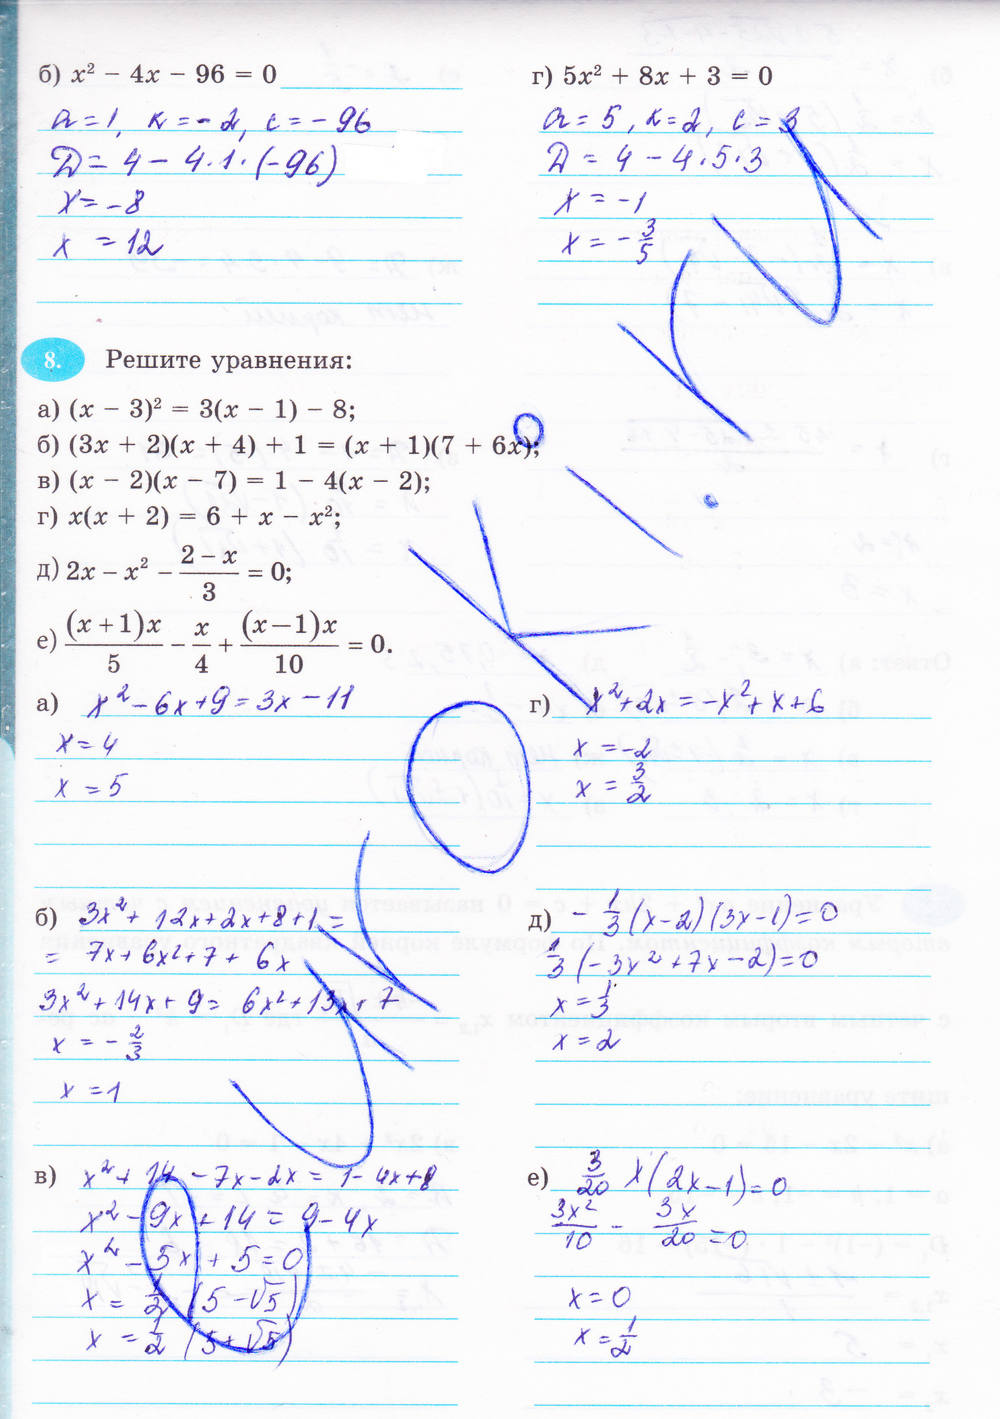 б) x² − 4x − 96 = 0
a = 1, к = −2, c = −96
D = 4 − 4·1·(−96)
x = −8
x = 12
г) 5x² + 8x + 3 = 0
a = 5, к = 2, c = 3
D = 4 − 4·5·3
x = −1
x = −3/5
8. Решите уравнения:
а) (x − 3)² = 3(x − 1) − 8;
б) (3x + 2)(x + 4) + 1 = (x + 1)(7 + 6x);
в) (x − 2)(x − 7) = 1 − 4(x − 2);
г) x(x + 2) = 6 + x − x²;
д) 2x − x² − (2 − x)/3 = 0;
е) (x + 1)x/5 − x/4 + (x − 1)x/10 = 0.
а) x² − 6x + 9 = 3x − 11
x = 4
x = 5
г) x² + 2x = −x² + x + 6
x = −2
x = 3/2
б) 3x² + 12x + 2x + 8 + 1 =
= 7x + 6x² + 7 + 6x
3x² + 14x + 9 = 6x² + 13x + 7
x = −2/3
x = 1
д) −1/3 (x − 2)(3x − 1) = 0
1/3 (−3x² + 7x − 2) = 0
x = 1/3
x = 2
в) x² + 14 − 7x − 2x = 1 − 4x + 8
x² − 9x + 14 = 9 − 4x
x² − 5x + 5 = 0
x = 1/2 (5 − √5)
x = 1/2 (5 + √5)
е) 3/20 x(2x − 1) = 0
3x²/10 − 3x/20 = 0
x = 0
x = 1/2
uroki.ru